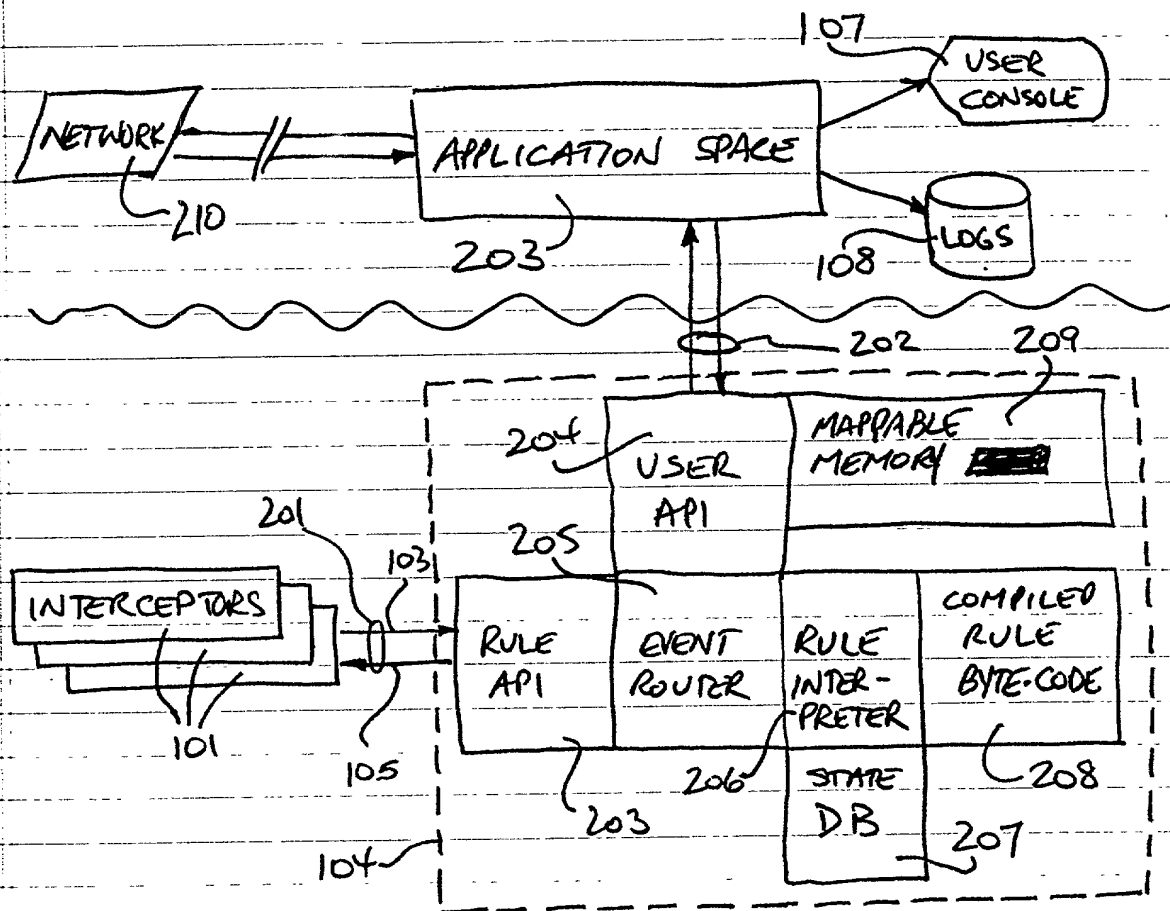 107
USER
CONSOLE
NETWORK
APPLICATION SPACE
210
203
108
LOGS
202
209
204
USER
API
MAPPABLE
MEMORY
201
103
205
INTERCEPTORS
RULE
API
EVENT
ROUTER
RULE
INTER-
PRETER
COMPILED
RULE
BYTE-CODE
101
105
203
206
STATE
DB
208
104
207